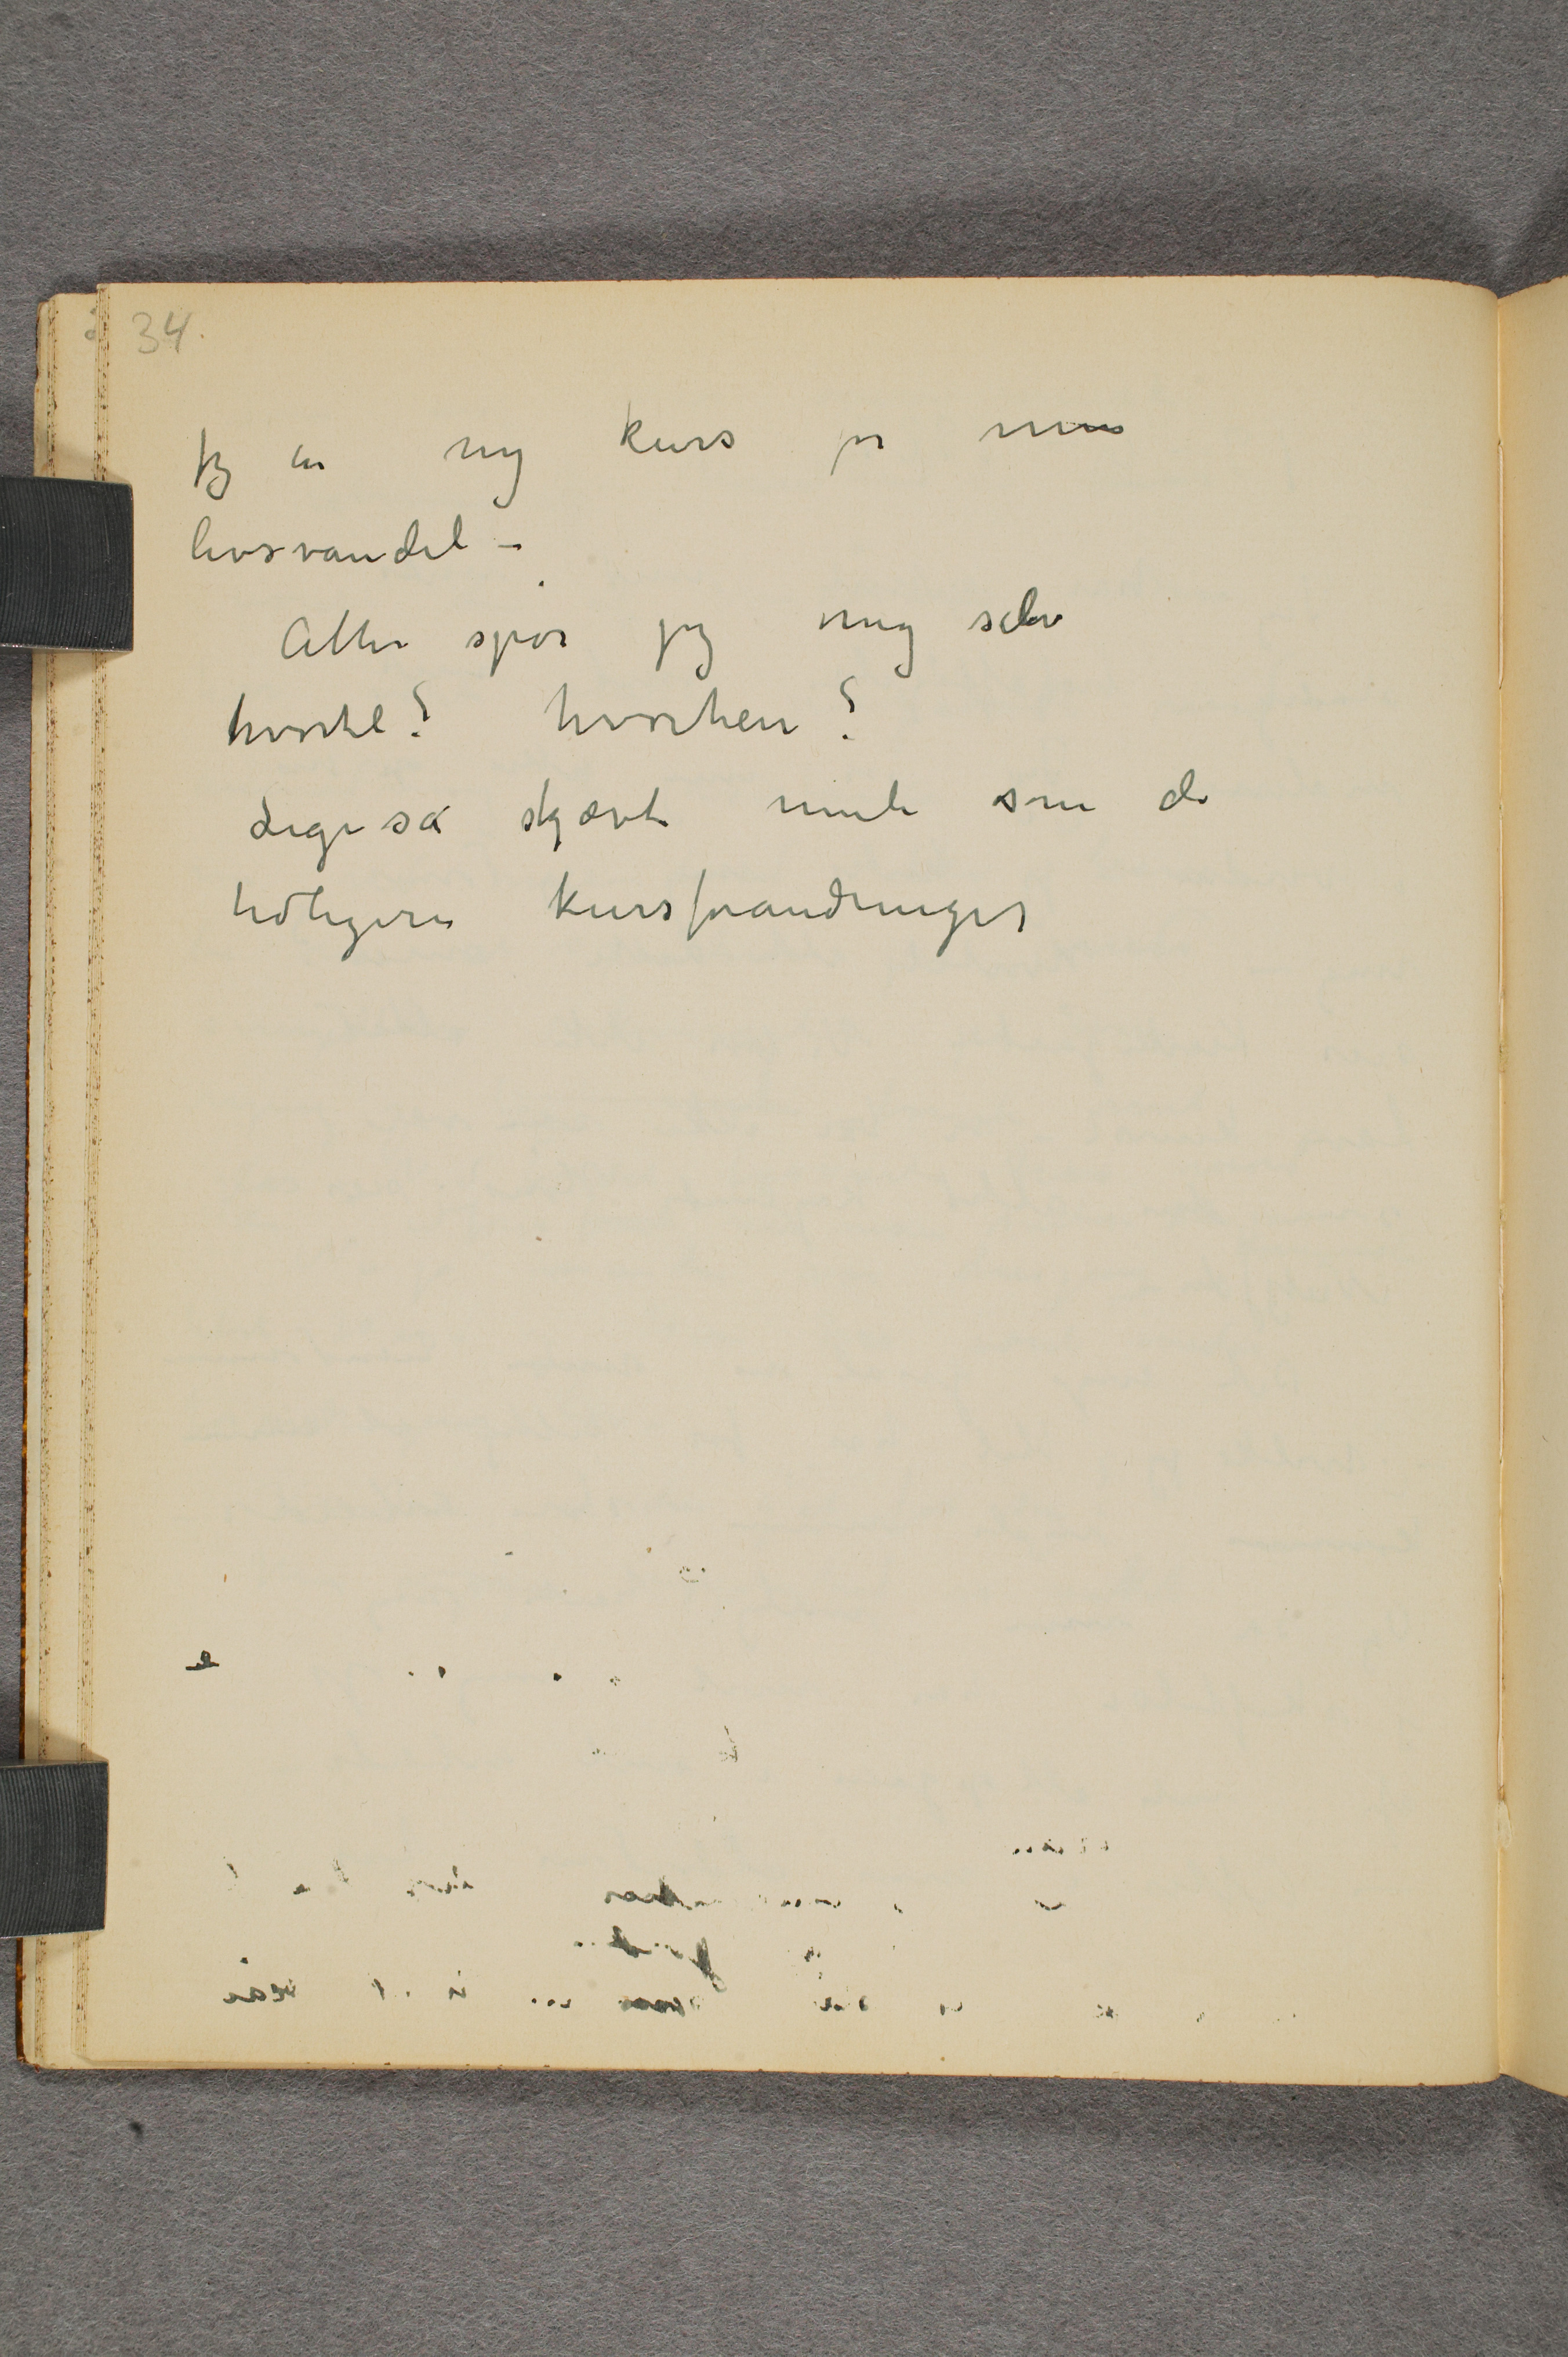 34.
jeg en ny kurs for min
livsvandel –
Atter spør jeg mig selv
hvortil? hvorhen?
Ligeså skjævt [...] som de
tidligere kursforandringer